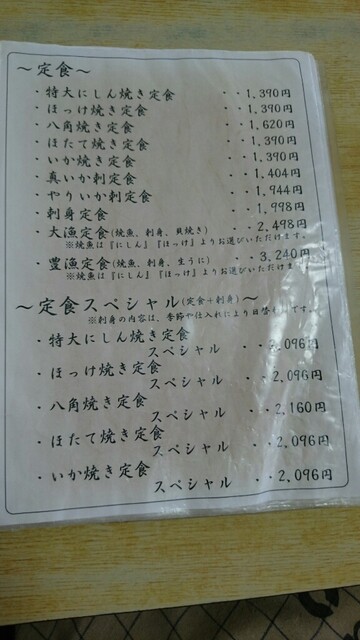 ～定食～
・特大にしん焼き定食 ・・1,390円
・ほっけ焼き定食 ・・1,390円
・八角焼き定食 ・・1,620円
・ほたて焼き定食 ・・1,390円
・いか焼き定食 ・・1,390円
・真いか刺定食 ・・1,404円
・やりいか刺定食 ・・1,944円
・刺身定食 ・・1,998円
・大漁定食(焼魚、刺身、貝焼き) ・・2,498円
※焼魚は『にしん』『ほっけ』よりお選びいただけます。
・豊漁定食(焼魚、刺身、生うに) ・・3,240円
※焼魚は『にしん』『ほっけ』よりお選びいただけます
～定食スペシャル(定食+刺身)～
※刺身の内容は、季節や仕入れにより日替わりです。
・特大にしん焼き定食
スペシャル ・・2,096円
・ほっけ焼き定食
スペシャル ・・2,096円
・八角焼き定食
スペシャル ・・2,160円
・ほたて焼き定食
スペシャル ・・2,096円
・いか焼き定食
スペシャル ・・2,096円